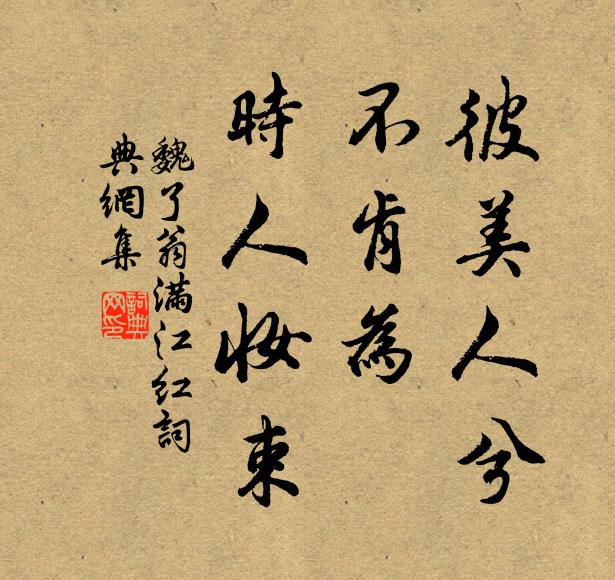 彼美人兮
不肯為
時人妝束
魏了翁滿江紅詞
典網集
詞典
网印